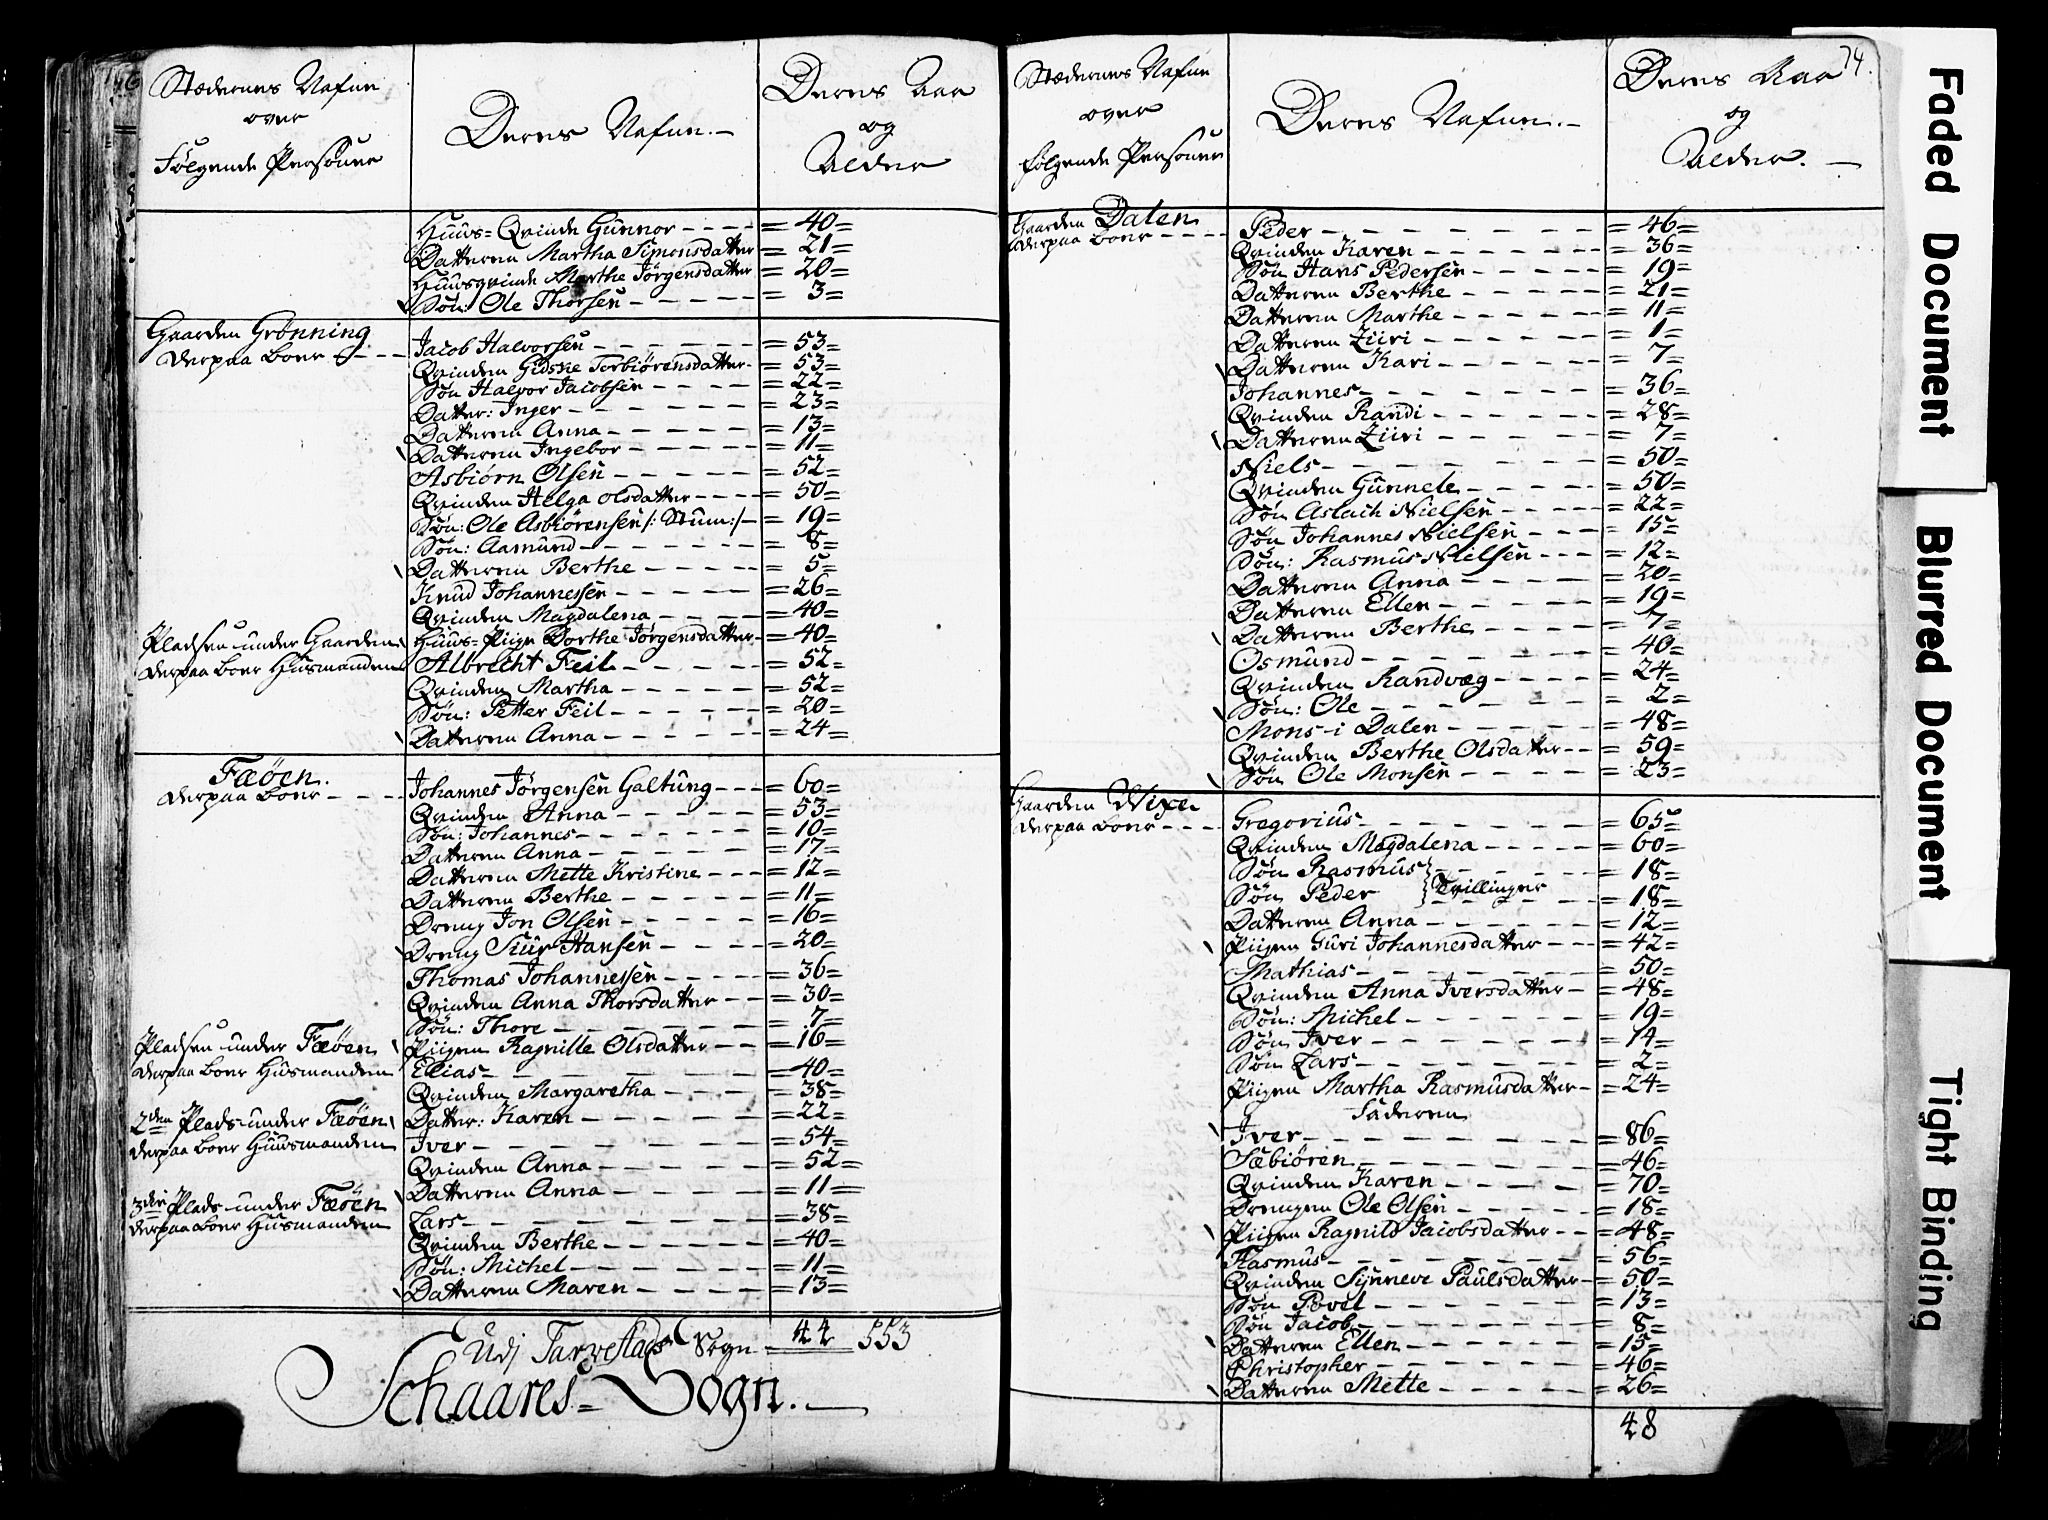 Stædernes Nafne
over
Følgende Persohner
Deres Nafne.
Deres Aar
og
Alder
Huus=Qvinde Gunnor = 40 =
Datteren Martha Simonsdatter = 21 =
Huusqvinde Marthe Jørgensdatter = 20 =
Søn: Ole Thorsen = 3 =
Gaarden Grönning
derpaa boer
Jacob Halvorsen = 53 =
Qvinden Gidske Torbiörensdatter = 53 =
Søn Halvor Jacobsen = 22 =
Datter: Inger = 23 =
Datteren Anna = 13 =
Datteren Ingebor = 11 =
Asbiørn Olsen = 52 =
Qvinden Helga Olsdatter = 50 =
Søn: Ole Asbiörensen /: Stum :/ = 19 =
Søn: Aamund = 8 =
Datteren Berthe = 5 =
Knud Johannessen = 26 =
Qvinden Magdalena = 40 =
Huus=Piige Dorthe Jörgensdatter = 40 =
Pladsen under Gaarden
derpaa boer Husmanden
Albrecht Feil = 52 =
Qvinden Martha = 52 =
Søn: Petter Feil = 20 =
Datteren Anna = 24 =
Fæøen.
derpaa boer
Johannes Jörgensen Galtung = 60 =
Qvinden Anna = 53 =
Søn: Johannes = 10 =
Datteren Anna = 17 =
Datteren Mette Kristine = 12 =
Datteren Berthe = 11 =
Dreng Jon Olsen = 16 =
Dreng Siur Hansen = 20 =
Thomas Johannessen = 36 =
Qvinden Anna Thorsdatter = 30 =
Søn: Thore = 7 =
Piigen Ragnille Olsdatter = 16 =
Pladsen under Fæøen
derpaa boer Husmanden
Elias = 40 =
Qvinden Margaretha = 38 =
Datter: Karen = 22 =
2den Plads under Fæøen
derpaa boer Huusmanden
Iver = 54 =
Qvinden Anna = 52 =
Datteren Anna = 11 =
3die Plads under Fæöen
derpaa boer Husmanden
Lars = 38 =
Qvinden Berthe = 40 =
Søn: Michel = 11 =
Datteren Maren = 13 =
Udj Tarvestads Sogn 44 553
Schaares=Sogn.
74.
Stædernes Nafne
over
følgende Persohner
Deres Nafne.
Deres Aar
og
Alder.
Gaarden Dalen
derpaa boer
Peder = 46 =
Qvinden Karen = 36 =
Søn Hans Pedersen = 19 =
Datteren Berthe = 21 =
Datteren Marthe = 11 =
Datteren Ziiri = 1 =
Datteren Kari = 7 =
Johannes = 36 =
Qvinden Randi = 28 =
Datteren Ziiri = 7 =
Niels = 50 =
Qvinden Gunnele = 50 =
Søn Aslach Nielsen = 22 =
Søn Johannes Nielsen = 15 =
Søn: Rasmus Nielsen = 12 =
Datteren Anna = 20 =
Datteren Ellen = 19 =
Datteren Berthe = 7 =
Osmund = 40 =
Qvinden Randvæg = 24 =
Søn: Ole = 2 =
Mons i Dalen = 48 =
Qvinden Berthe Olsdatter = 59 =
Søn Ole Monsen = 23 =
Gaarden Wixe
derpaa boer
Gregorius = 65 =
Qvinden Magdalena = 60 =
Søn Rasmus = 18 =
Søn Peder } Tvillinger = 18 =
Datteren Anna = 12 =
Piigen Guri Johannesdatter = 42 =
Mathias = 50 =
Qvinden Anna Iversdatter = 48 =
Søn: Michel = 19 =
Søn Iver = 14 =
Søn Lars = 2 =
Piigen Martha Rasmusdatter = 24 =
Faderen
Iver = 86 =
Sæbiören = 46 =
Qvinden Karen = 70 =
Drengen Ole Olsen = 18 =
Piigen Ragnild Jacobsdatter = 48 =
Rasmus = 56 =
Qvinden Synneve Paulsdatter = 50 =
Søn Povel = 13 =
Søn Jacob = 8 =
Datteren Ellen = 15 =
Christopher = 46 =
Datteren Mette = 26 =
48
Faded Document
Blurred Document
Tight Binding